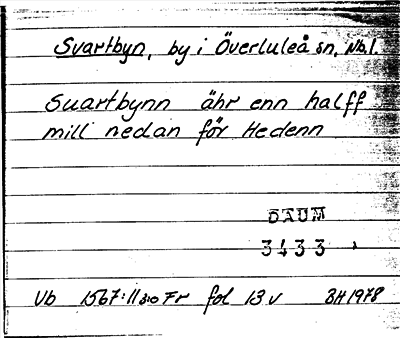 Svartbyn, by i Överluleå sn, Nb.l.
Suartbynn ähr enn halff
mill nedan för Hedenn
DAUM
3433
Vb 1567:11 Fr fol 13 v BH 1978